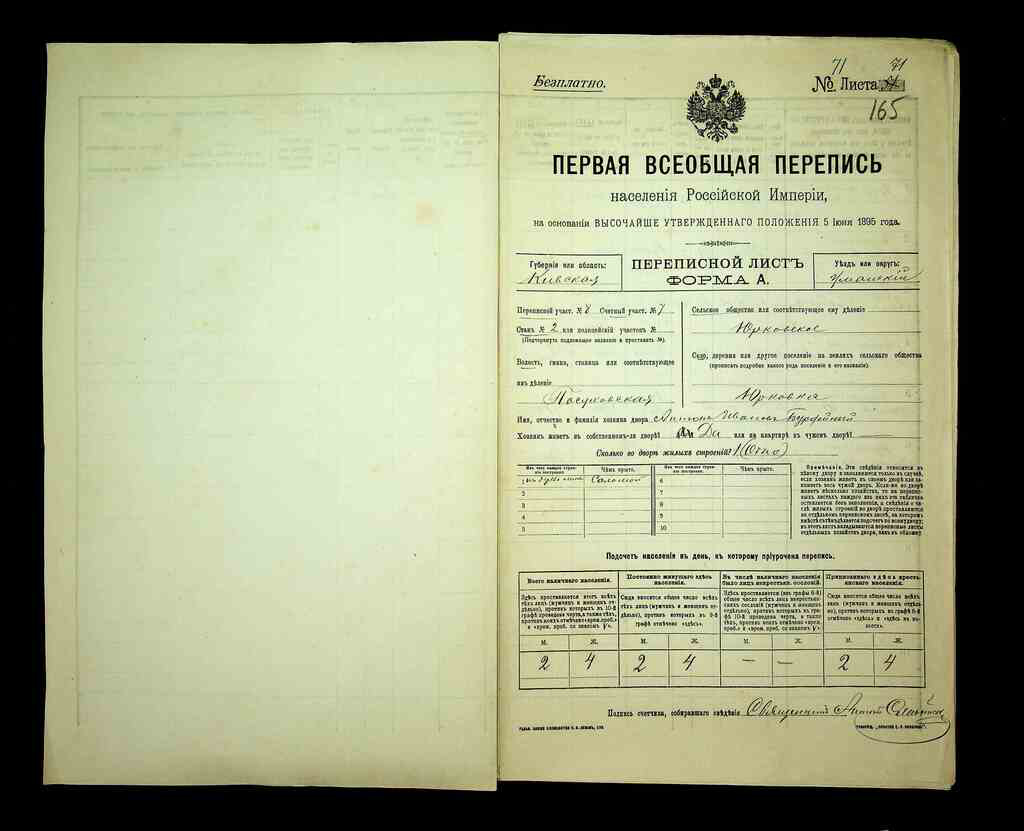 71 71
Безплатно.
№ Листа
165
ПЕРВАЯ ВСЕОБЩАЯ ПЕРЕПИСЬ
населенія Россійской Имперіи,
на основаніи ВЫСОЧАЙШЕ УТВЕРЖДЕННАГО ПОЛОЖЕНІЯ 5 Іюня 1895 года.
Губернія или область:
Кивская
ПЕРЕПИСНОЙ ЛИСТЪ
ФОРМА А.
Уѣздъ или округъ:
Уманскій
Переписной участ. № 8 Счетный участ. № 7
Станъ № 2 или полицейскій участокъ №
(Подчеркнуть подлежащее названіе и проставить №).
Волость, гмина, станица или соотвѣтствующее
имъ дѣленіе
Посуховская
Сельское общество или соотвѣтствующее ему дѣленіе
Юрковское
Село, деревня или другое поселеніе на земляхъ сельскаго общества
(прописать подробно какого рода поселеніе и его названіе).
Юрковка
Имя, отчество и фамилія хозяина двора Антонъ Ивановъ
Хозяинъ живетъ въ собственномъ-ли дворѣ? Да или на квартирѣ въ чужомъ дворѣ?
Сколько во дворѣ жилыхъ строеній? 1 (Одно)
Изъ чего каждое строеніе построено.
Чѣмъ крыто.
Изъ чего каждое строеніе построено.
Чѣмъ крыто.
1 Соломой 6
2 7
3 8
4 9
5 10
Примѣчаніе. Эти свѣдѣнія относятся къ
цѣлому двору и заполняются только въ случаѣ,
если хозяинъ живетъ въ своемъ дворѣ или за-
нимаетъ весь чужой дворъ. Если-же во дворѣ
живетъ нѣсколько хозяйствъ, то на перепис-
ныхъ листахъ каждаго изъ нихъ эта табличка
оставляется безъ заполненія, а свѣдѣнія о чи-
слѣ жилыхъ строеній во дворѣ проставляются
на отдѣльномъ переписномъ листѣ, на которомъ
Подсчетъ населенія въ день, къ которому пріурочена перепись.
Всего наличнаго населенія.
Здѣсь проставляется итогъ всѣхъ
тѣхъ лицъ (мужчинъ и женщинъ от-
дѣльно), противъ которыхъ въ 10-й
графѣ проведена черта, а также тѣхъ,
противъ коихъ отмѣчено «врем. преб.»
и «врем. преб. со знакомъ V».
М. Ж.
2 4
Постоянно живущаго здѣсь
населенія.
Сюда вносится общее число всѣхъ
тѣхъ лицъ (мужчинъ и женщинъ от-
дѣльно), противъ которыхъ въ 9-й
графѣ отмѣчено «здѣсь».
М. Ж.
2 4
Въ числѣ наличнаго населенія
было лицъ некрестьянск. сословій.
Здѣсь проставляется (изъ графы 6-й)
общее число всѣхъ лицъ некрестьян-
скихъ сословій (мужчинъ и женщинъ
отдѣльно), противъ которыхъ въ гра-
фѣ 10-й проведена черта, а также
тѣхъ, противъ коихъ отмѣчено «врем.
преб.» и «врем. преб. со знакомъ V».
М. Ж.
— —
Приписаннаго здѣсь кресть-
янскаго населенія.
Сюда вносится общее число всѣхъ
лицъ (мужчинъ и женщинъ отдѣль-
но), противъ которыхъ въ графѣ 8-й
отмѣчено «здѣсь» и «здѣсь въ во-
лости».
М. Ж.
2 4
Подпись счетчика, собиравшаго свѣдѣнія Священникъ Антоній